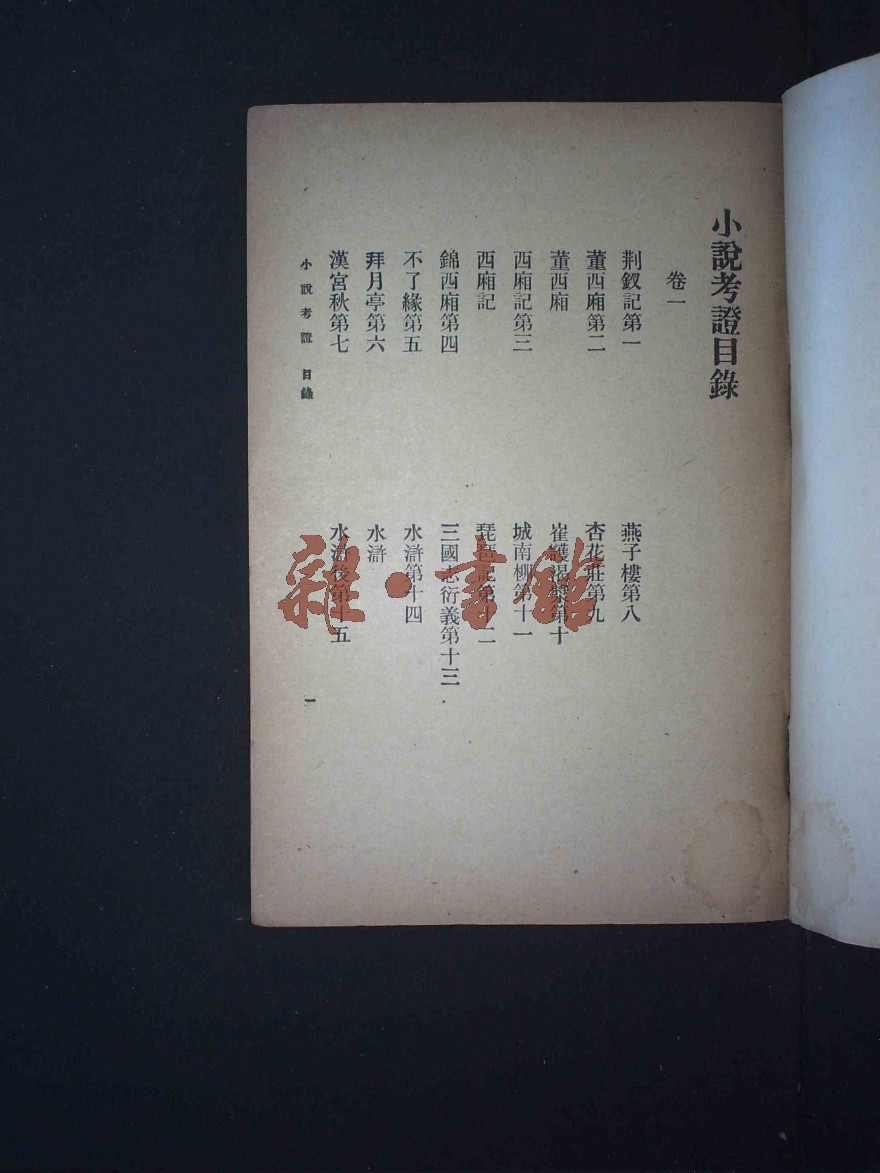 小說考證目錄
卷一
荆釵記第一
董西廂第二
董西廂
西廂記第三
西廂記
錦西廂第四
不了緣第五
拜月亭第六
漢宮秋第七
燕子樓第八
杏花莊第九
崔護渴漿第十
城南柳第十一
琵琶記第十二
三國志衍義第十三
水滸第十四
水滸
水滸後第十五
小說考證 目錄
一
雜·書館